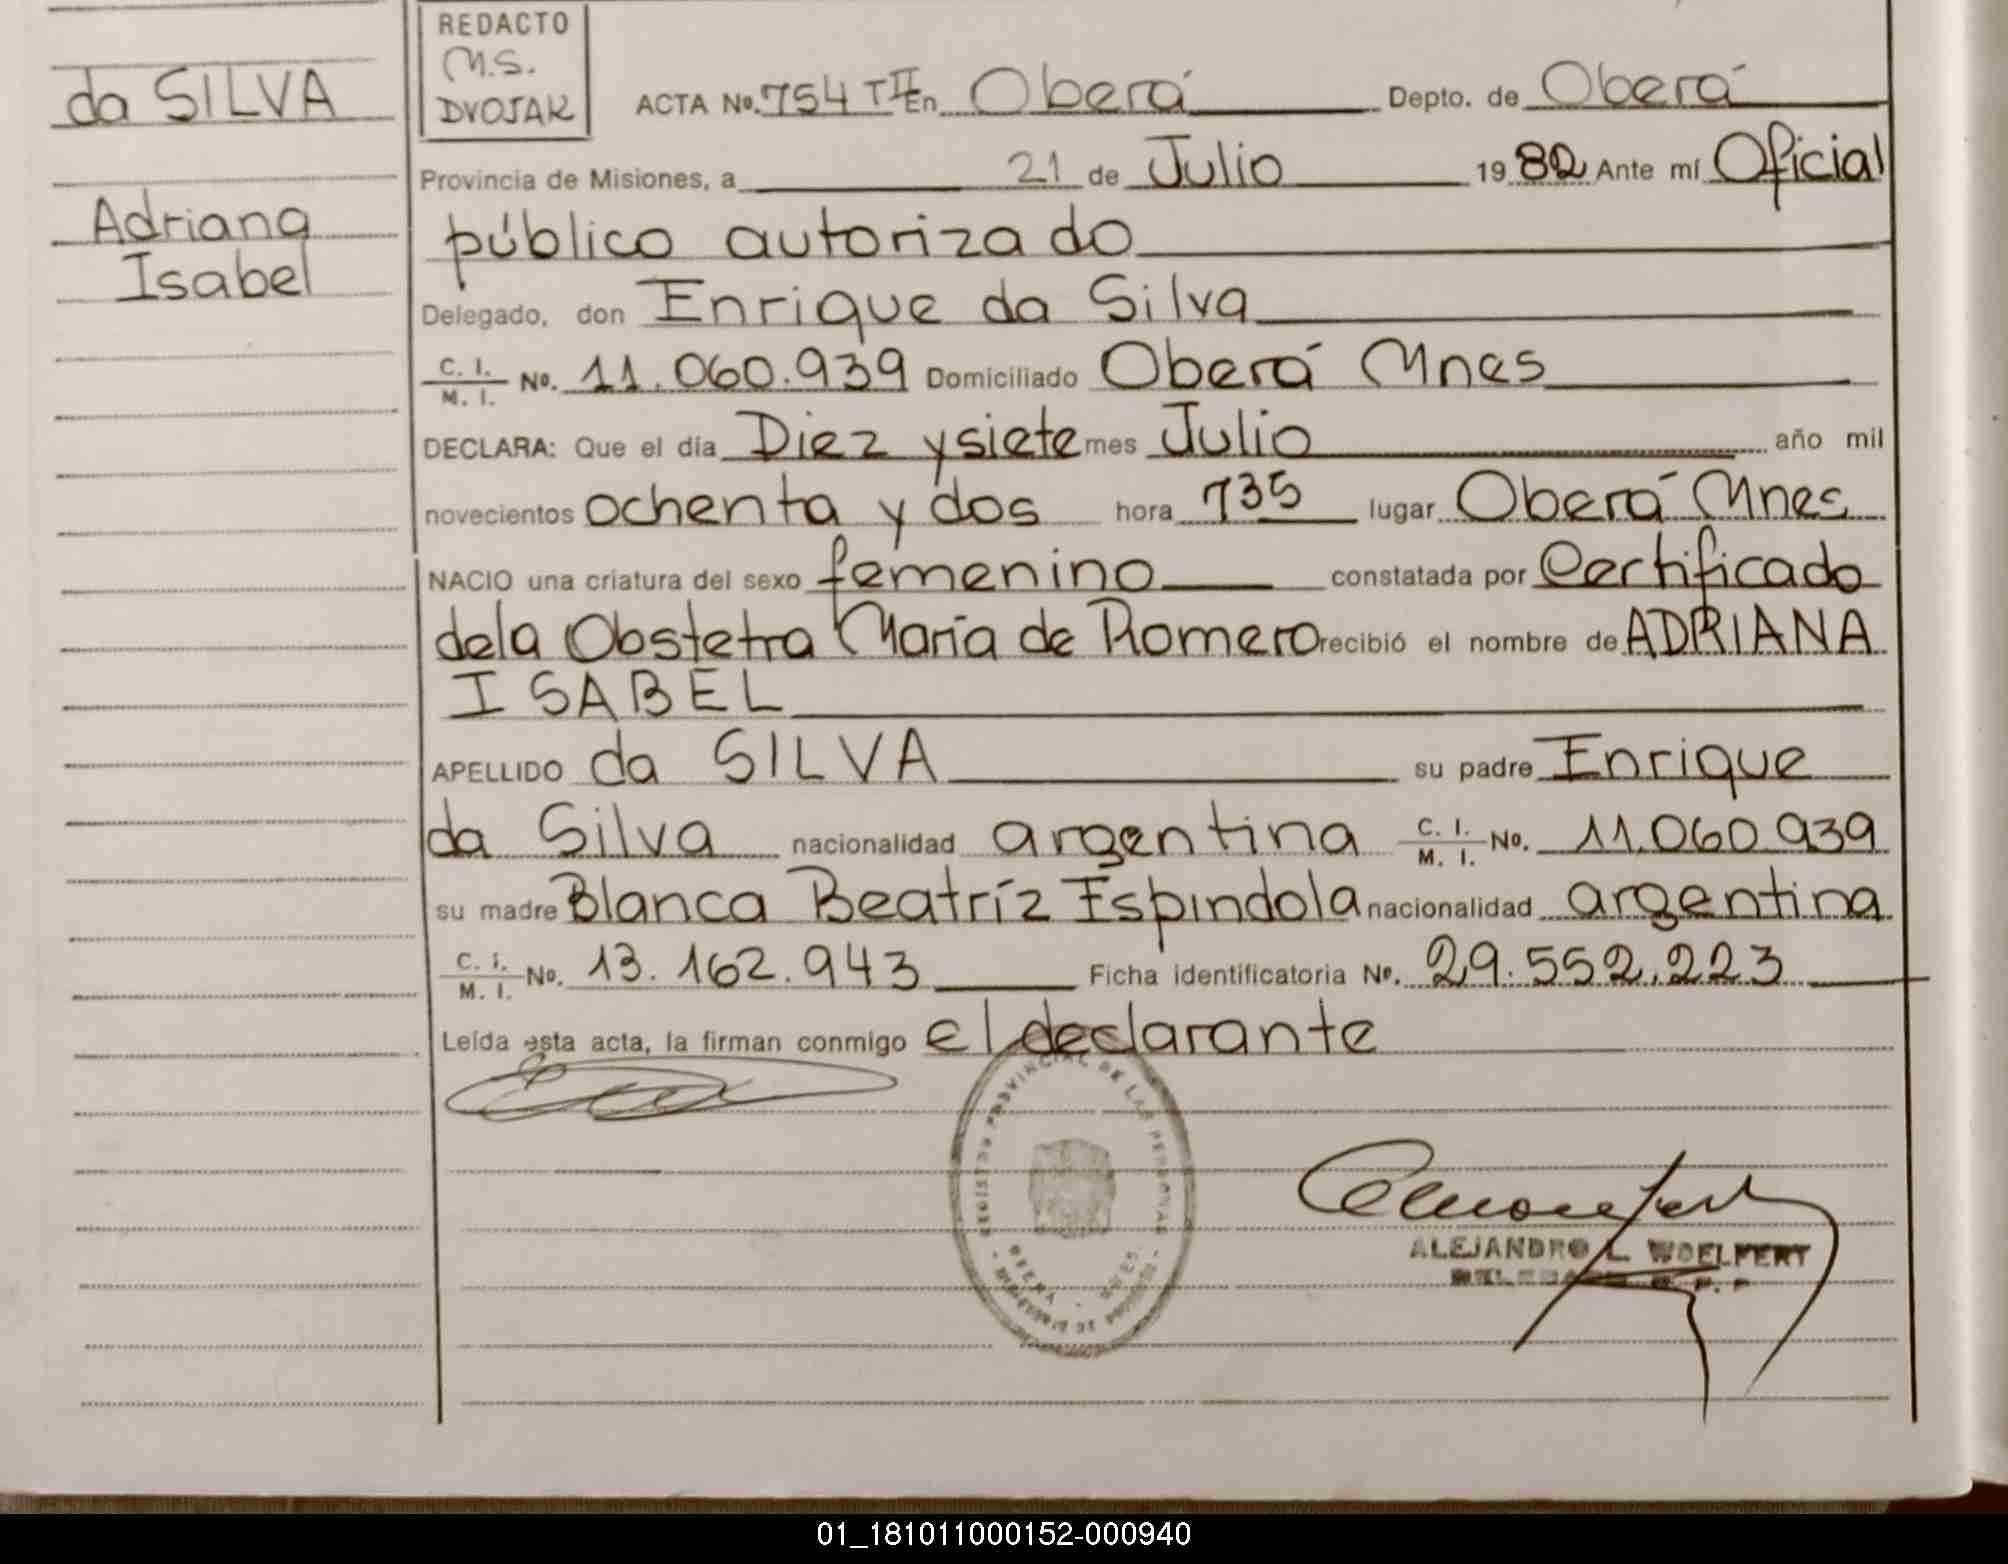 da SILVA
Adriana
Isabel
REDACTO
M.S.
DVOJAK
ACTA No. 754 T II En Oberá Depto. de Oberá
Provincia de Misiones, a 21 de Julio 1982 Ante mí Oficial
público autorizado
Delegado, don Enrique da Silva
C. I. / M. I. No. 11.060.939 Domiciliado Oberá Mnes
DECLARA: Que el día Diez y siete mes Julio año mil
novecientos ochenta y dos hora 735 lugar Oberá Mnes
NACIO una criatura del sexo femenino constatada por Certificado
dela Obstetra María de Romero recibió el nombre de ADRIANA
ISABEL
APELLIDO da SILVA su padre Enrique
da Silva nacionalidad argentina C. I. / M. I. No. 11.060.939
su madre Blanca Beatríz Espindola nacionalidad argentina
C. I. / M. I. No. 13.162.943 Ficha identificatoria No. 29.552.223
Leída esta acta, la firman conmigo el declarante
REGISTRO PROVINCIAL DE LAS PERSONAS
OBERA
ALEJANDRO L. WOELFERT
01_181011000152-000940